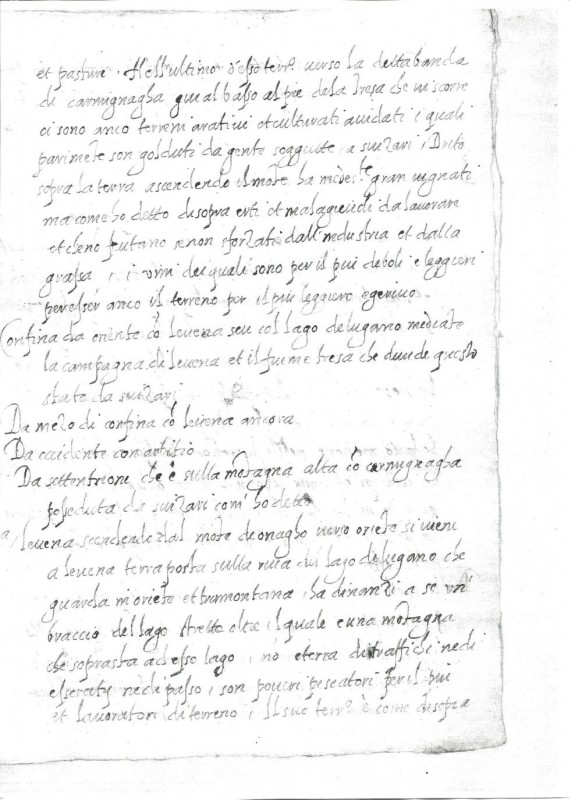 et pasture. Nell'ultimo d'esso terr.o verso la detta banda
di carmignagha giu al basso al pie dela Tresa che vi scorre
ci sono anco terreni arativi et culturati avidati i quali
parimete son golduti da gente soggiette a svizari. Drito
sopra la terra ascendendo il mote ha gran vignati
ma come ho detto disopra erti et malagievoli da lavorare
et che no fruttano se non sforzati dall'industria et dalla
grassa, i vini dei quali sono per il piu deboli e leggieri
per esser anco il terreno per il piu leggiero e
Confina da oriente co levena seu col lago de lugano mediate
la campagna di levena et il fiume tresa che divide questo
stato da svizari
Da mezo di confina co levena ancora
Da occidente con arbitio
Da settentrione che è sulla motagna alta co carmignagha
posseduta da svizari com'ho detto
levena scendendo dal mote de onagho verso oriete si viene
a levena terra posta sulla riva del lago de lugano che
guarda in oriete et tramontana, ha dinanzi a se un
braccio del lago stretto oltre il quale e una motagna
che soprasta ad esso lago, no e terra di traffichi ne di
ne di passo, son poveri pescatori per il piu
et lavoratori di terreno, Il suo terr.o è come disopra